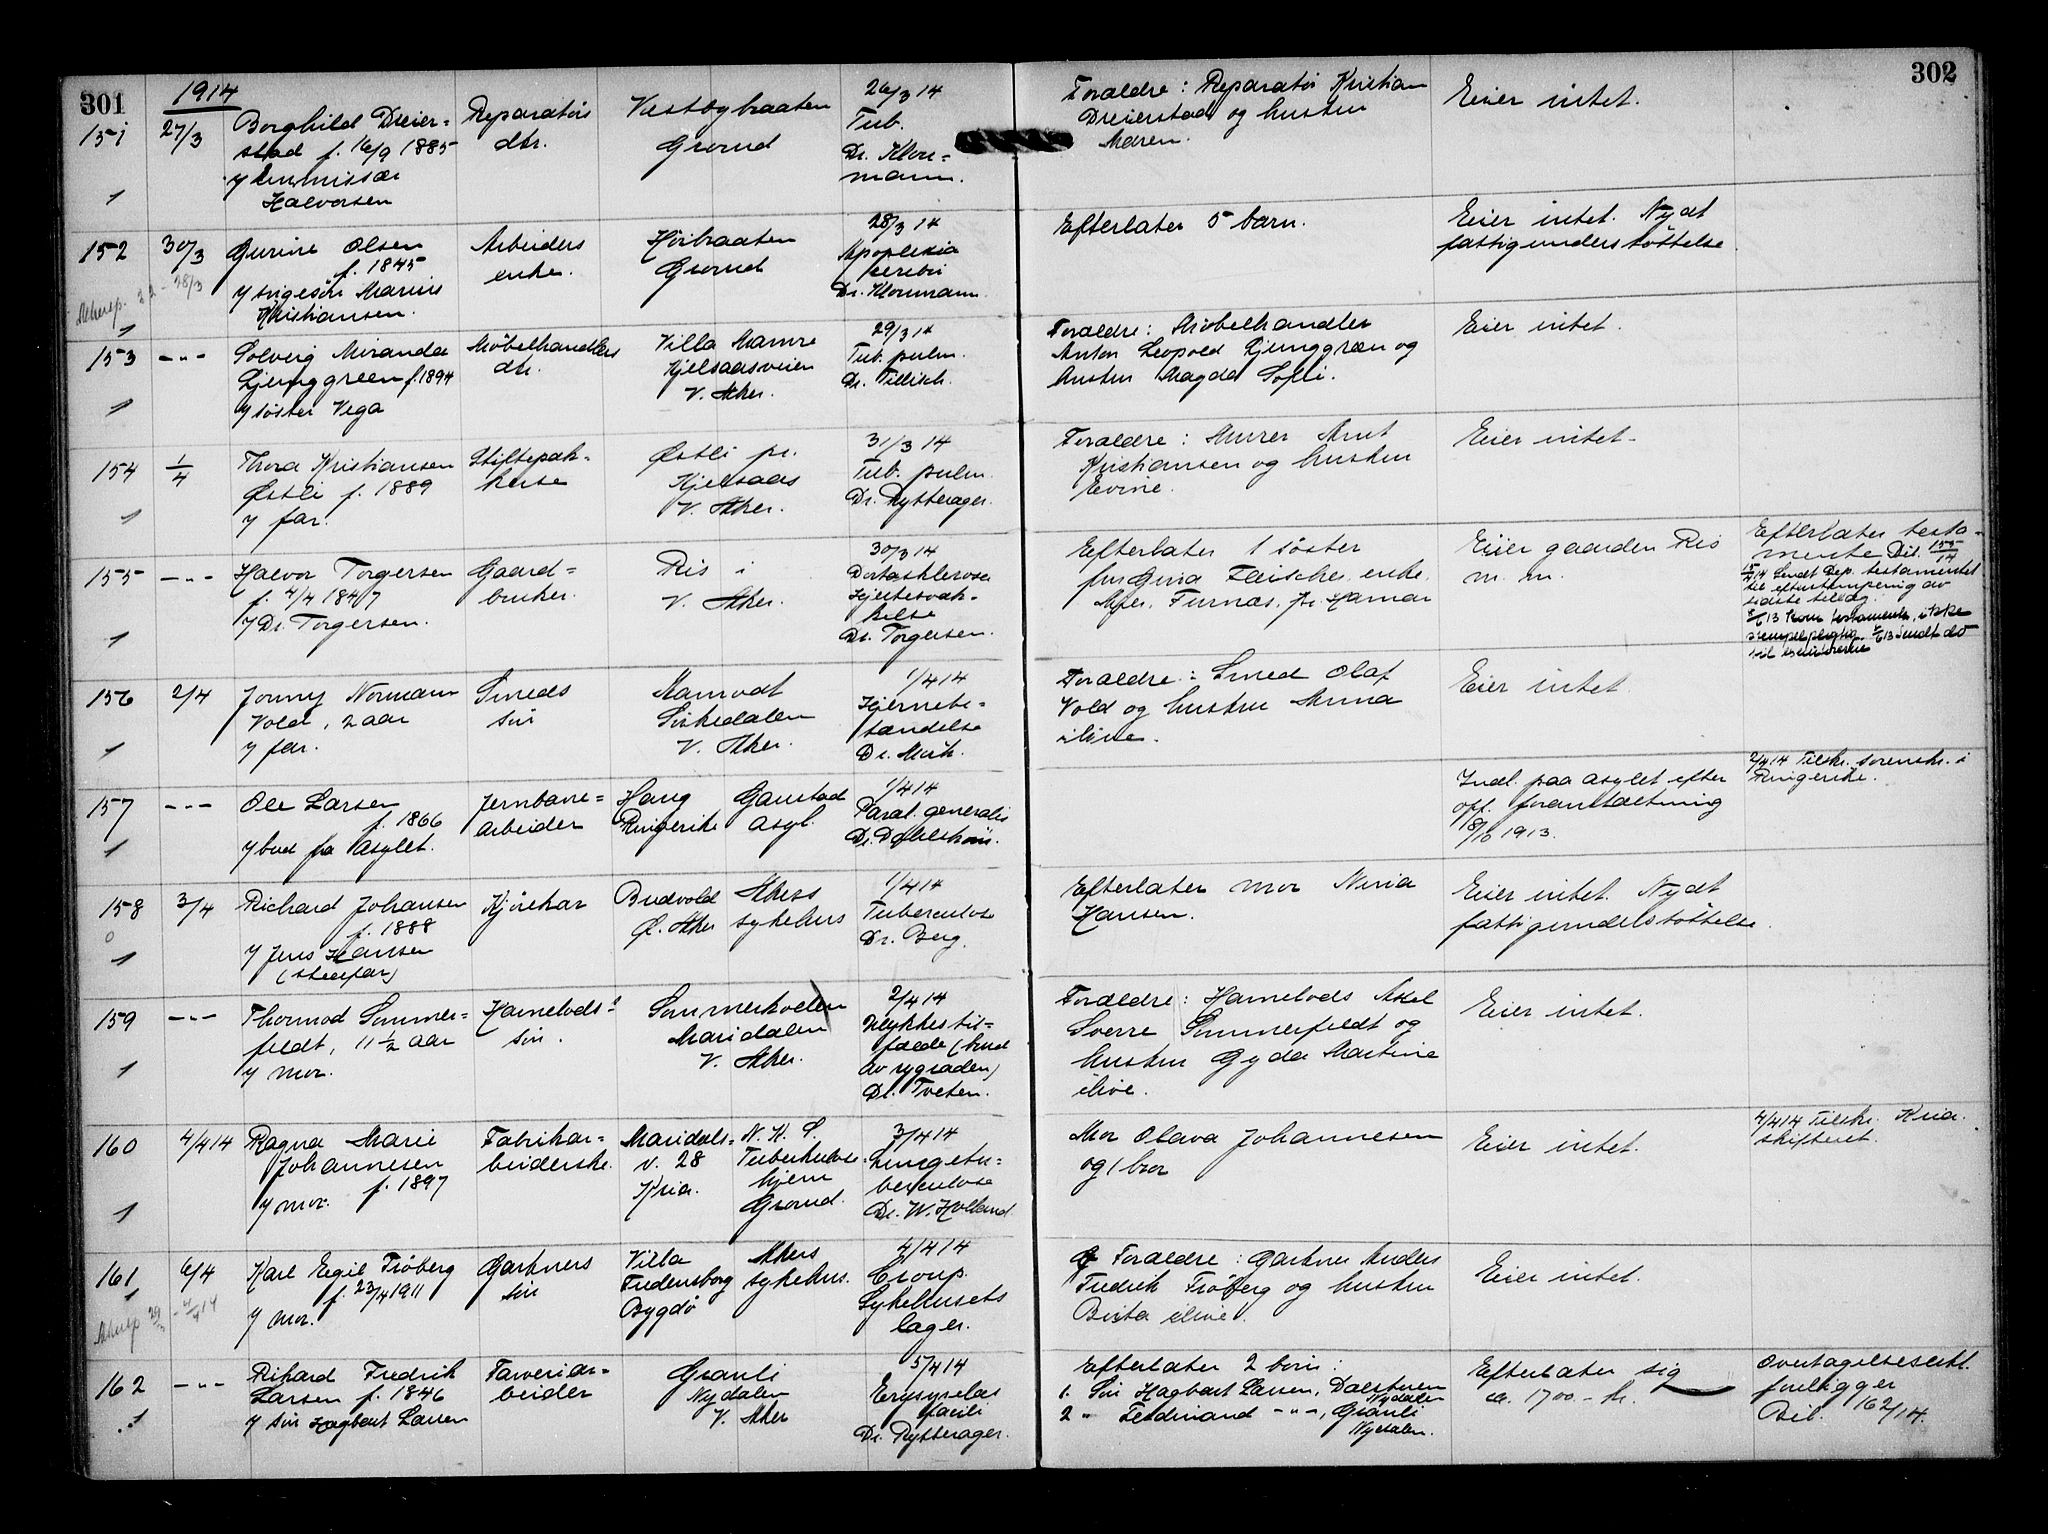 301
302
1914
151
27/3
Borghild Dreier=
stad f. 16/9 1885
v/ Emmissær
Halvorsen
Reparatørs
dtr.
Vestbybraaten
Grorud
26/3 14
Tub.
Dr. Klou=
mann.
Forældre: Reparatør Kristian
Dreierstad og hustru
Maren.
Eier intet.
1
152
30/3
Gurine Olsen
f. 1845
v/ svigesøn Marius
Kristiansen.
Arbeiders
enke.
Høibraaten
Grorud
28/3 14
Apoplexia
cerebri
Dr. Kloumann.
Efterlater 5 barn.
Eier intet. Nydt
fattigunderstøttelse
28/3
1
153
-"-
Solveig Miranda
Ljunggreen f. 1894
v/ søster Vega
Møbelhandlers
dtr.
Villa Mamre
Kjelsaasveien
V. Aker.
29/3 14
Tub. pulm.
Dr. Tillisch.
Forældre: Møbelhandler
Anton Leopold Ljunggræn og
hustru Magda Sofie.
Eier intet.
1
154
1/4
Thora Kristiansen
Østli f. 1889
v/ far.
Stiftepak-
kerske
Østli pr.
Kjelsaas
V. Aker.
31/3 14
Tub. pulm.
Dr. Rytterager.
Forældre: Murer Arnt
Kristiansen og hustru
Evine.
Eier intet-
1
155
-"-
Halvor Torgersen
f. 4/4 1847
v/ Dr. Torgersen.
Gaard=
bruker.
Ris i
V. Aker.
30/3 14
Hjertesvæk-
kelse
Dr. Torgersen.
Efterlater 1 søster
fru Gina Fleischer, enke,
Furnæs, pr. Hamar
Eiier gaarden Ris
m. m.
Efterlater testa-
mente Bil. 155/14
15/4 14 Sendt Dep. testamentet
til efterstempling av
sidste tillæg.
1
156
2/4
Jonny Normann
Vold, 2 aar
v/ far.
Smeds
søn
Sørkedalen
V. Aker.
1/4 14
Hjernebe-
tændelse
Dr. Mørk.
Forældre: Smed Olaf
Vold og hustru Anna
ilive.
Eier intet.
1
157
-"-
Ole Larsen
f. 1866
v/ bud fra Asylet.
Jernbane=
arbeider
Haug
Ringerike
Gaustad
Asyl.
1/4 14
Paral. generalis
Indl. paa asylet efter
off. foranstaltning
18/10 1913.
2/4 14 Tilskr. sorenskr. i
Ringerike.
1
158
3/4
Richard Johansen
f. 1888
v/ Jens Hansen
(stedfar)
Kjørekar
Budvold
Ø. Aker
Akers
sykehus
1/4 14
Tuberculose
Dr. Berg.
Efterlater mor Niria
Hansen.
Eier intet. Nydt
fattigunderstøttelse.
0
1
159
-"-
Thormod Sommer=
feldt, 11 1/2 aar
v/ mor.
Havnelods-
søn.
Sommerkvelen
Maridalen
V. Aker.
2/4 14
Ulykkestil=
fælde (brud
av rygraden)
Dr. Tveten.
Forældre: Havnelods Axel
Sverre Sommerfeldt og
hustru Gyda Martine
ilive.
Eier intet.
1
160
4/4 14
Ragna Marie
Johannesen
f. 1897
v/ mor.
Fabrikar=
beiderske.
Maridals=
v. 28
Kria.
N. K. S.
Tuberkulose-
hjem
Grorud.
3/4 14
Lungetu=
berculose
Dr. W. Holland.
Mor Olava Johannesen
og 1 bror
Eier intet.
4/4 14 Tilskr. Kria.
skifteret.
1
161
6/4
Karl Egil Frøberg
f. 23/4 1911
v/ mor.
Gartners
søn
Villa
Fredensborg
Bygdø
Akers
sykehus.
4/4 14
Croup.
Sykehusets
læger.
Forældre: Gartner Anders
Fredrik Frøberg og hustru
Birta ilive.
Eier intet.
1
162
-"-
Rikard Fredrik
Larsen f. 1846
v/ søn Hagbart Larsen
Farveriar=
beider
Granli
Nydalen
V. Aker
5/4 14
Erysipelas
faciei
Dr. Rytterager.
Efterlater 2 børn:
1. Søn Hagbart Larsen,
Nydalen
2 " Ferdinand -"-, Granli
Nydalen.
Efterlater sig
ca. 1700.- kr.
Overtagelseserkl.
foreligger
Bil. 162/14.
1